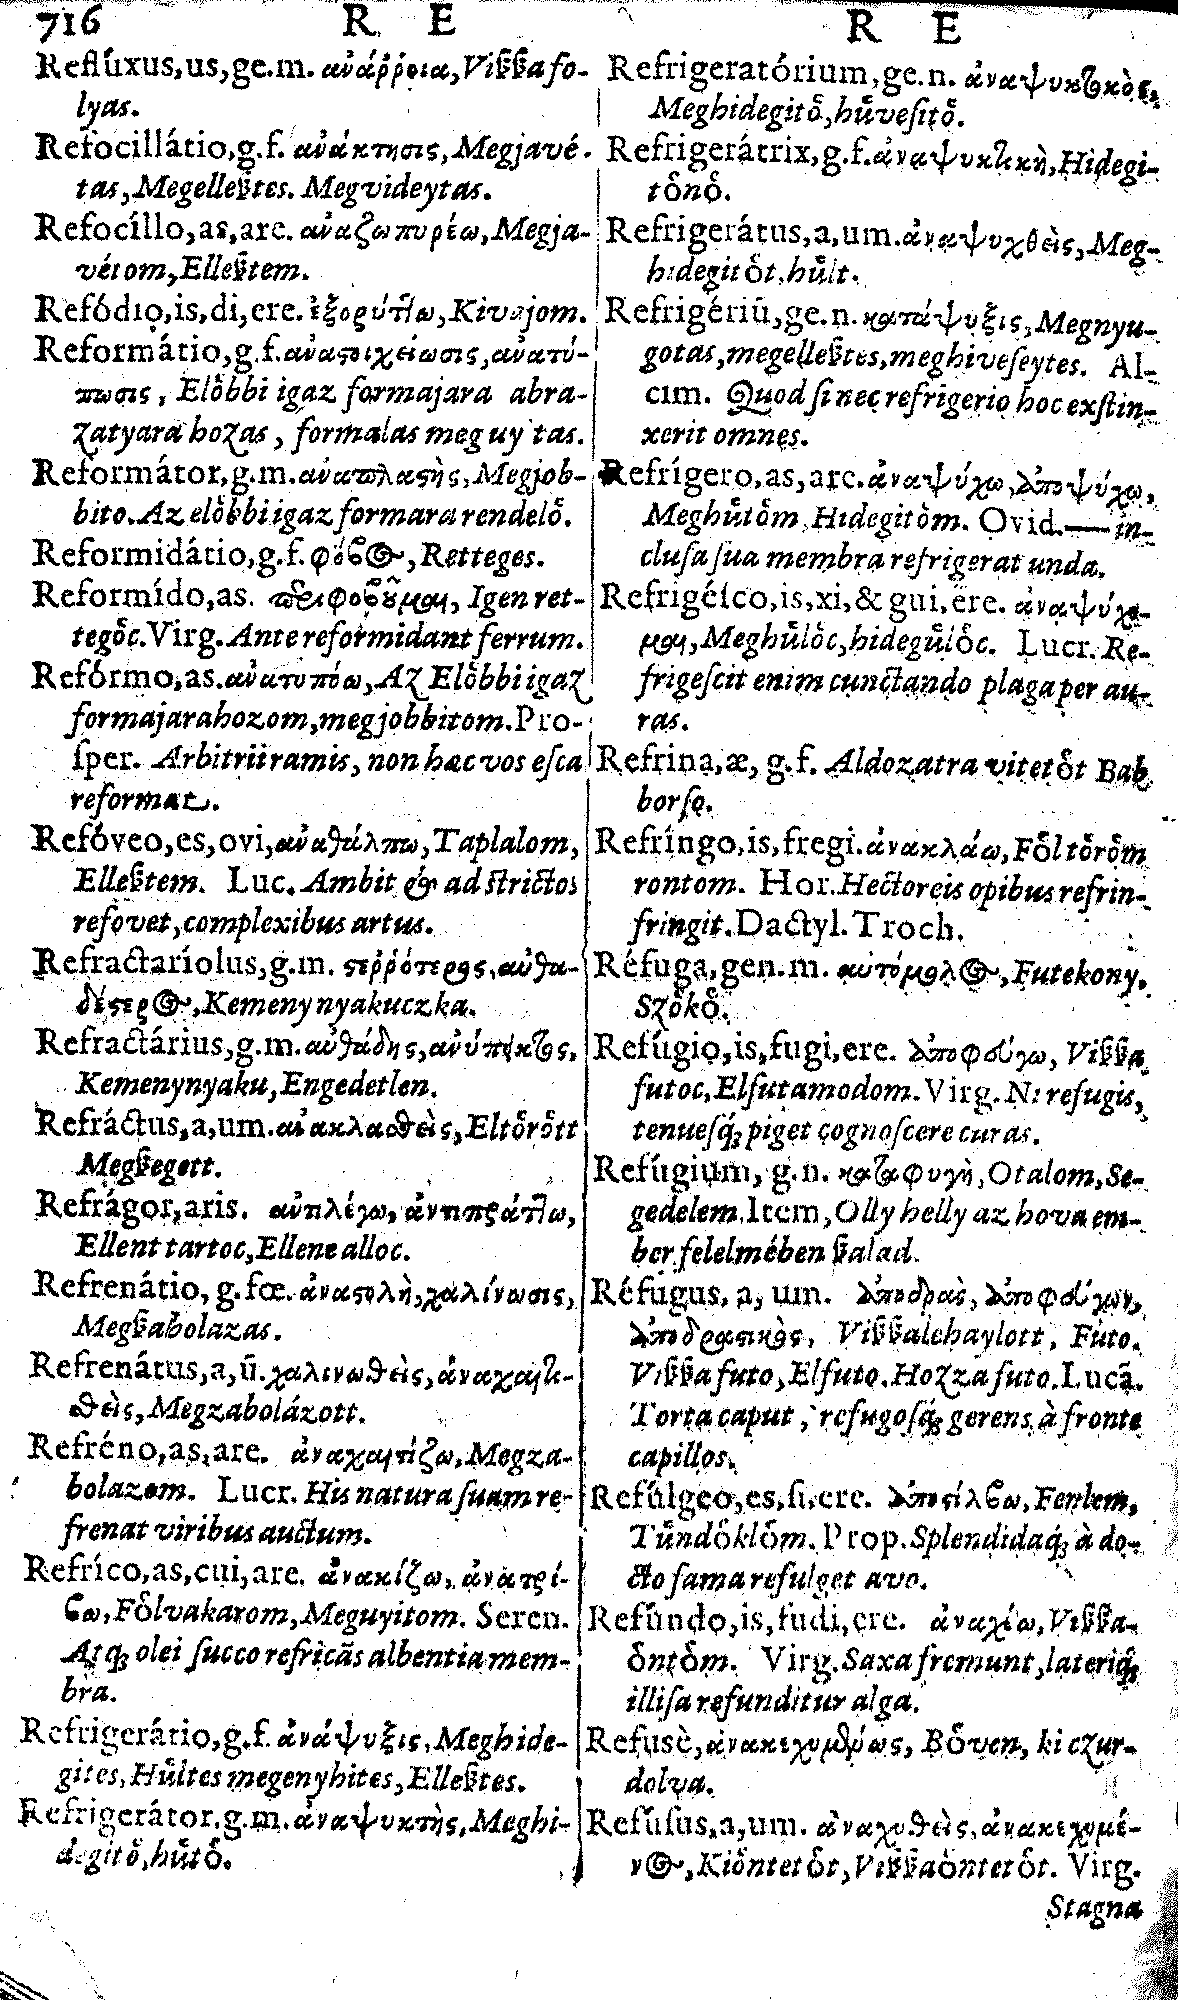 716 R E
R E
Reflúxus,us,ge.m. ἀνάῤῥοια, Viſſſſa fo-
lyas.
Refocillátio,g.f. ἀνάκτησις, Megjavé-
tas, Megelleſſtes. Megvideytas.
Refocíllo,as,are. ἀναζωπυρέω, Megja-
vétom, Elleſſtem.
Refódio,is,di,ere. ἐξορύτ̃ω, Kivajom.
Reformátio,g.f. ἀναϛοιχείωσις, ἀνατύ-
πωσις, Elo̊bbi igaz formajara abra-
zatyara hozas, formalas meg uy tas.
Reformátor,g.m. ἀναπλαϛὴς, Megjob-
bito. Az elo̊bbi igaz formara rendelo̊.
Reformidátio,g.f. φόβος, Retteges.
Reformído,as. περιφοβοῦμαι, Igen ret-
tego̊c. Virg. Ante reformidant ferrum.
Refórmo,as. ἀνατυπόω, Az Elo̊bbi igaz
formajara hozom, megjobbitom. Pro-
ſper. Arbitrii ramis, non hæc vos eſca
reformat.
Refóveo,es,ovi, ἀναθάλπω, Taplalom,
Elleſſtem. Luc. Ambit & adſtrictos
refovet, complexibus artus.
Refractaríolus,g.m. ϛεῤῥότερος, αὐθα-
δέϛερος, Kemeny nyakuczka.
Refractárius,g.m. αὐθάδης, ἀνύπεικτος,
Kemenynyaku, Engedetlen.
Refráctus,a,um. ἀνακλασθεὶς, Elto̊ro̊tt
Megſſegett.
Refrágor,aris. ἀντιλέγω, ἀντιπράτ̃ω,
Ellent tartoc, Ellene alloc.
Refrenátio, g.fœ. ἀναϛολὴ, χαλίνωσις,
Megſſabolazas.
Refrenátus,a,ũ. χαλινωθεὶς, ἀναχαιτι-
θεὶς, Megzabolázott.
Refréno,as,are. ἀναχαιτίζω, Megza-
bolazom. Lucr. His natura ſuam re-
frenat viribus auctum.
Refríco,as,cui,are. ἀνακίζω, ἀνατρί-
βω, Fo̊lvakarom, Meguyitom. Seren.
Atq; olei ſucco refricãs albentia mem-
bra.
Refrigerátio,g.f. ἀνάψυξις, Meghide-
gites, Hůltes megenyhites, Elleſſtes.
Refrigerátor,g.m. ἀναψυκτὴς, Meghi-
degito̊, hůto̊.
Refrigeratórium,ge.n. ἀναψυκτικὸς,
Meghidegito̊, hůveſito̊.
Refrigerátrix,g.f. ἀναψυκτικὴ, Hidegi-
to̊no̊.
Refrigerátus,a,um. ἀναψυχθεὶς, Meg-
hidegito̊t, hůlt.
Refrigériũ,ge.n. κατάψυξις, Megnyu-
gotas, megelleſſtes, meghiveſeytes. Al-
cim. Quod ſi nec refrigerio hoc exſtin-
xerit omnes.
Refrígero,as,are. ἀναψύχω, ἀποψύχω,
Meghůto̊m, Hidegito̊m. Ovid. — in-
cluſa ſua membra refrigerat unda.
Refrigéſco,is,xi,& gui,ere. ἀναψύχο-
μαι, Meghůlo̊c, hidegůlo̊c. Lucr. Re-
frigeſcit enim cunctando plaga per au-
ras.
Refrina,æ, g.f. Aldozatra viteto̊t Bab
borſo.
Refríngo,is,fregi. ἀνακλάω, Fo̊lto̊ro̊m
rontom. Hor. Hectoreis opibus refrin-
fringit. Dactyl. Troch.
Réfuga, gen.m. αὐτόμολος, Futekony,
Szo̊ko̊.
Refúgio,is,fugi,ere. ἀποφεύγω, Viſſſſa
futoc, Elfutamodom. Virg. N: refugis,
tenueſq; piget cognoſcere curas.
Refúgium, g.n. καταφυγὴ, Otalom, Se-
gedelem. Item, Olly helly az hova em-
ber felelmében ſſalad.
Réfugus, a, um. ἀποδρὰς, ἀποφεύγων,
ἀποδραϛικὸς, Viſſſſalehaylott, Futo.
Viſſſſa futo, Elfuto. Hozza futo. Lucã.
Torta caput, refugoſq; gerens à fronte
capillos.
Refúlgeo,es,ſi,ere. ἀποϛίλβω, Fenlem,
Tůndo̊klo̊m. Prop. Splendidaq; à do-
cto fama refulget avo.
Refúndo,is,fudi,ere. ἀναχέω, Viſſſſa-
o̊nto̊m. Virg. Saxa fremunt, lateriq;
illiſa refunditur alga.
Refusè, ἀνακεχυμένως, Bo̊ven, ki czur-
dolva.
Refúſus,a,um. ἀναχυθεὶς, ἀνακεχυμέ-
νος, Kio̊nteto̊t, Viſſſſao̊nteto̊t. Virg.
Stagna